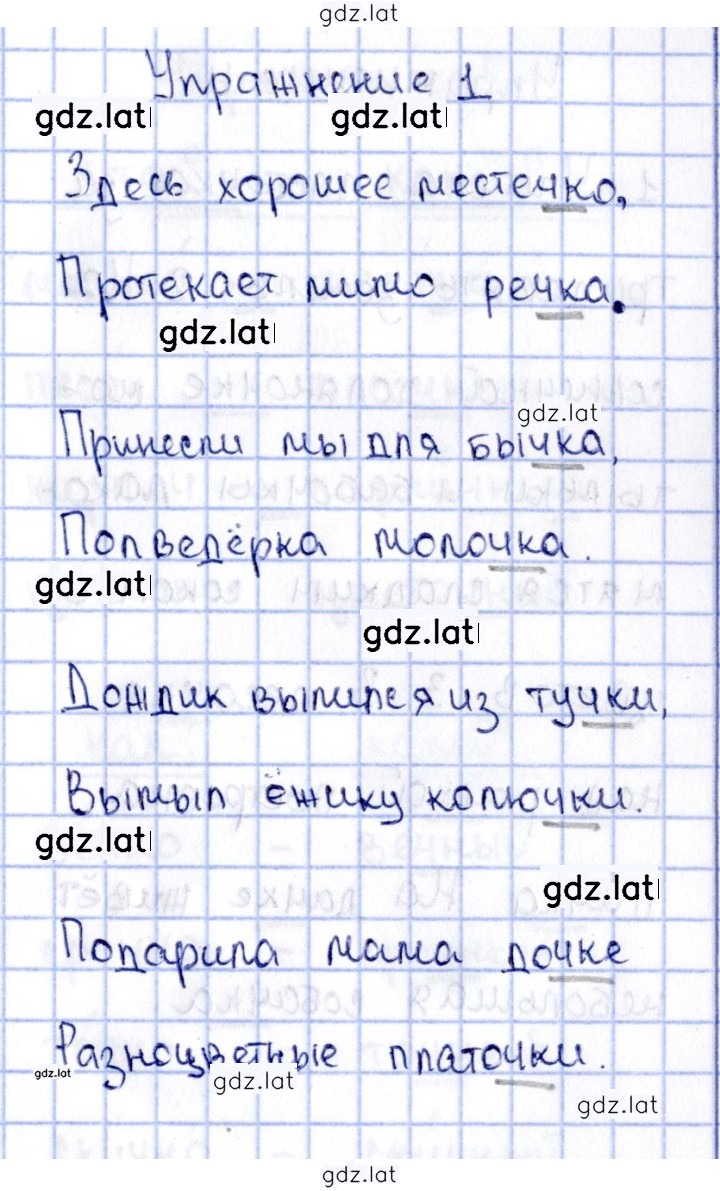 gdz.lat
Упражнение 1
gdz.lat gdz.lat
Здесь хорошее местечко,
Протекает мимо речка.
gdz.lat
gdz.lat
Принесли мы для бычка,
Полведёрка молочка.
gdz.lat
gdz.lat
Дождик вылился из тучки,
Вымыл ёжику колючки.
gdz.lat
gdz.lat
Подарила мама дочке
Разноцветные платочки.
gdz.lat gdz.lat
gdz.lat
gdz.lat